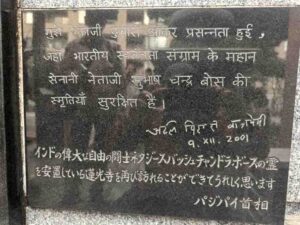 मुझे रेंकोजी दुबारा आकर प्रसन्नता हुई,
जहां भारतीय स्वतंत्रता संग्राम के महान
सेनानी नेताजी सुभाष चन्द्र बोस की
स्मृतियां सुरक्षित हैं।
अटल बिहारी वाजपेयी
9.XII.2001
インドの偉大な自由の闘士ネタジースバッシュチャンドラボースの霊
を安置している蓮光寺を再び訪れることができてうれしく思います
バジパイ首相